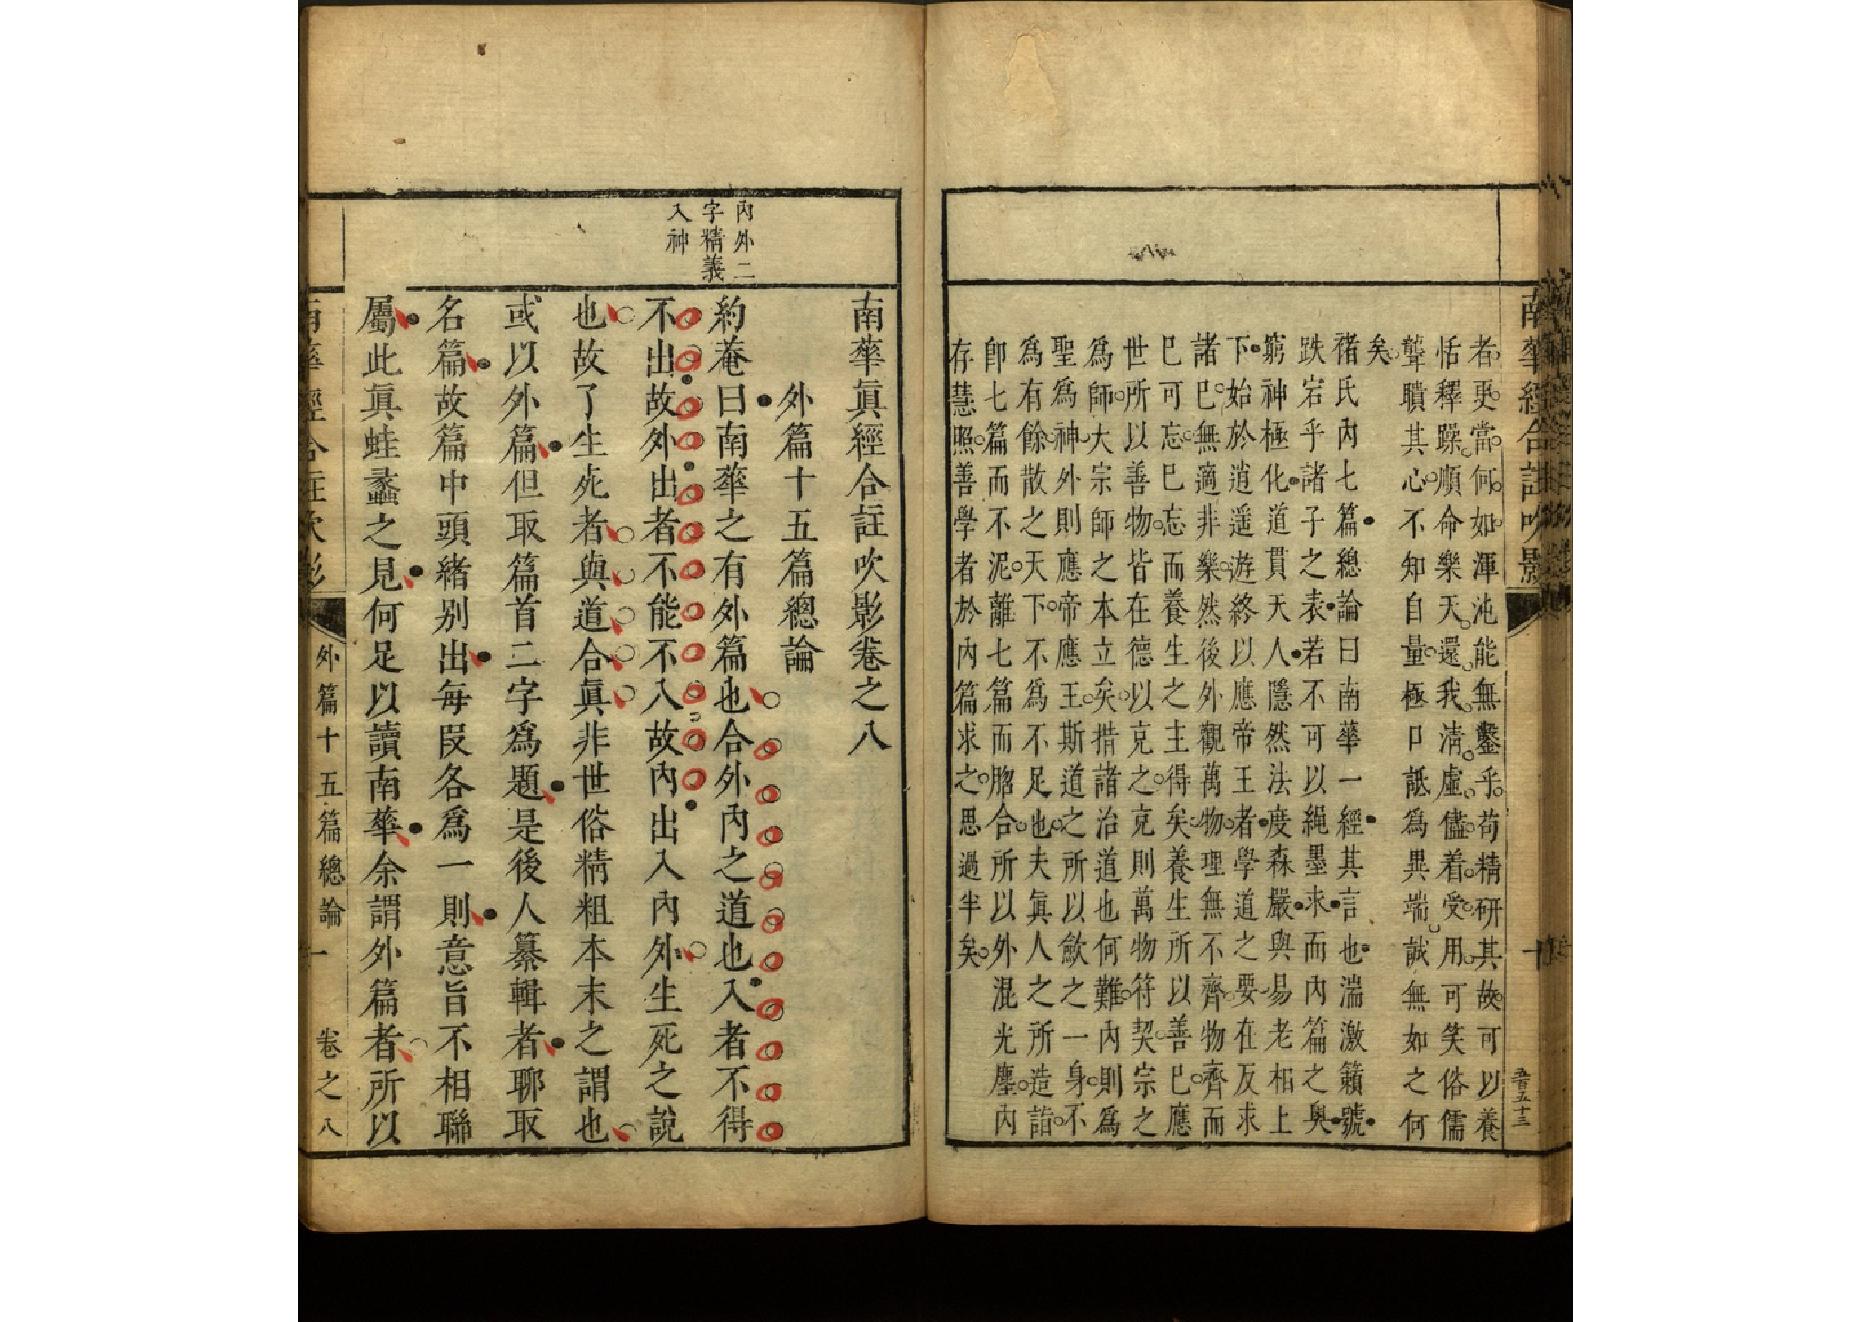 南華經合註吹影
者更當何如渾沌能無鑿乎苟精研其故可以養
恬釋躁順命樂天還我清虛儘着受用可笑俗儒
聾瞶其心不知自量極口詆爲異端誠無如之何
矣
褚氏內七篇總論曰南華一經其言也湍激籟號
跌宕乎諸子之表若不可以繩墨求而內篇之奥
窮神極化道貫天人隱然法度森嚴與易老相上
下始於逍遥遊終以應帝王者學道之要在反求
諸已無適非樂然後外觀萬物理無不齊物齊而
已可忘已忘而養生之主得矣養生所以善已應
世所以善物皆在德以克之克則萬物符契宗之
爲師大宗師之本立矣措諸治道也何難內則爲
聖爲神外則應帝應王斯道之所以歛之一身不
爲有餘散之天下不爲不足也夫眞人之所造詣
卽七篇而不泥離七篇而脗合所以外混光塵內
存慧照善學者於內篇求之思過半矣
南華眞經合註吹影卷之八
外篇十五篇總論
內外二
字精義
入神
約菴曰南華之有外篇也合外內之道也入者不得
不出故外出者不能不入故內出入內外生死之說
也故了生死者與道合眞非世俗精粗本末之謂也
或以外篇但取篇首二字爲題是後人纂輯者聊取
名篇故篇中頭緒别出每叚各爲一則意旨不相聯
屬此眞蛙蠡之見何足以讀南華余謂外篇者所以
南華經合註吹影
外篇十五篇總論 一 卷之八